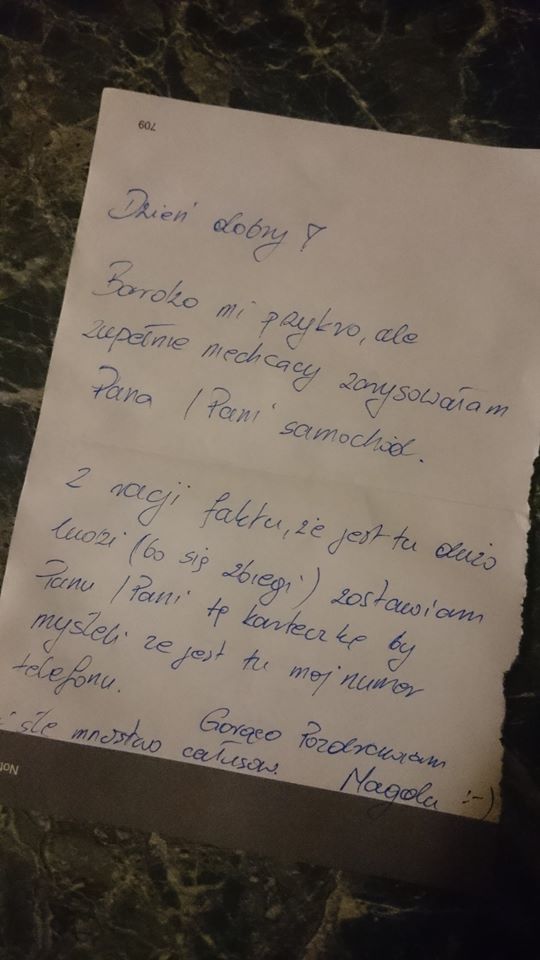 709
Dzień dobry!
Bardzo mi przykro, ale
zupełnie niechcący zarysowałam
Pana / Pani samochód.
Z racji faktu, że jest tu dużo
ludzi (bo się zbiegli) zostawiam
Panu / Pani tę karteczkę by
myśleli że jest tu mój numer
telefonu.
Gorąco Pozdrawiam
i śle mnóstwo całusów.
Magda :-)